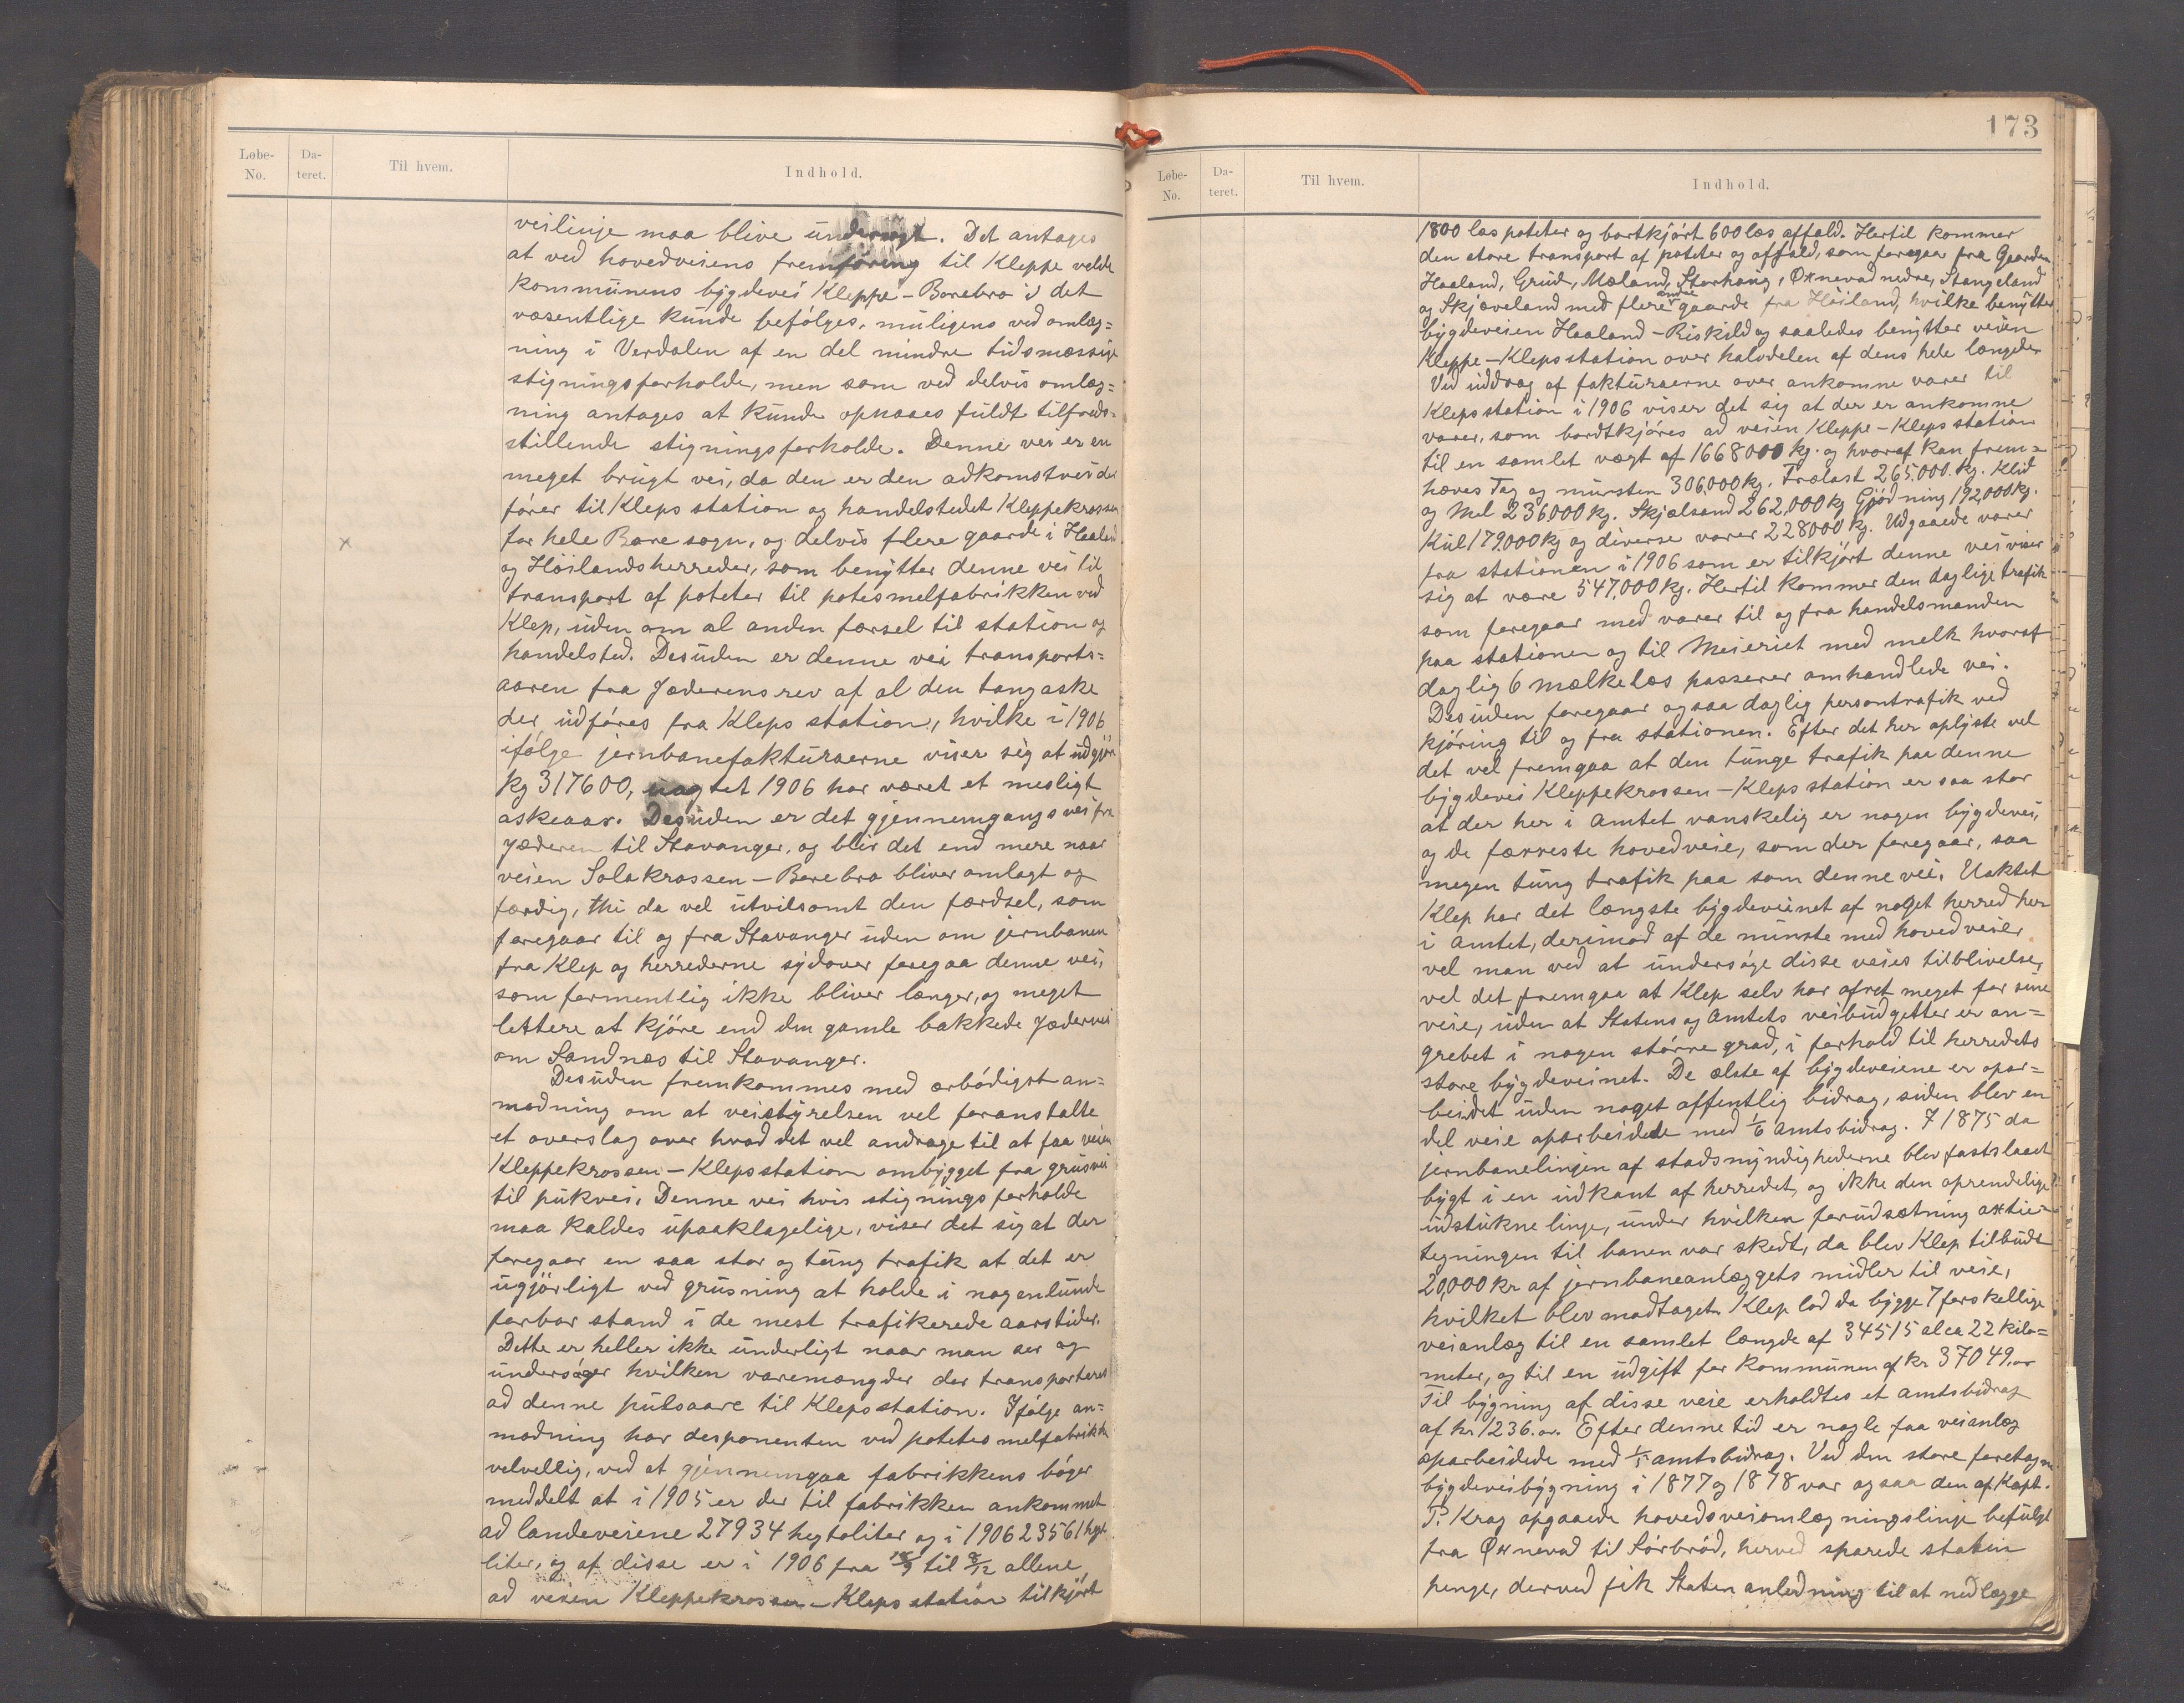 Løbe-No.
Da-teret.
Til hvem.
Indhold.
veilinje maa blive undersøgt. Det antages
at ved hovedveiens fremføring til Kleppe vilde
kommunens bygdevei Kleppe - Borebro i det
væsentlige kunde befølges, muligens ved omlæg=
ning i Verdalen af en del mindre tidsmæssige
stigningsforholde, men som ved delvis omlæg=
ning antages at kunde opnaaes fuldt tilfreds-
stillende stigningsforholde. Denne vei er en
meget brugt vei, da den er den adkomstvei der
fører til Kleps station og handelstedet Kleppekrossen
for hele Bore sogn, og delvis flere gaarde i Haaland
og Høilandsherreder, som benytter denne vei til
transport af poteter til potesmelfabrikken ved
Klep, uden om al anden færsel til station og
handelsted. Desuden er denne vei transports=
aaren fra Jæderens rev af al den tangaske
der udføres fra Kleps station, hvilke i 1906
ifølge jernbanefakturaerne viser sig at udgjør
Kg 317600, uagtet 1906 har været et mesligt
askeaar. Desuden er det gjennemgangsvei fra
Jæderen til Stavanger, og blir det end mere naar
veien Solakrossen - Borebro bliver omlagt og
færdig, thi da vel utvilsomt den færdsel, som
foregaar til og fra Stavanger uden om jernbanen
fra Klep og herrederne sydover foregaa denne vei,
som formentlig ikke bliver længer, og meget
lettere at kjøre end den gamle bakkede Jædervei
om Sandnæs til Stavanger.
Desuden fremkommes med ærbødigst an=
modning om at veistyrelsen vel foranstalte
et overslag over hvad det vel andrage til at faa veien
Kleppekrossen - Klepsstation ombygget fra grusvei
til pukvei. Denne vei hvis stigningsforholde
maa kaldes upaaklagelige, viser det sig at der
foregaar en saa stor og tung trafik at det er
ugjørligt ved grusning at holde i nogenlunde
farbar stand i de mest trafikerede aarstider.
Dette er heller ikke underligt naar man ser og
undersøger hvilken varemængder der transporteres
ad denne pulsaare til Klepsstation. Ifølge an=
modning har desponenten ved potetesmelfabrikke
velvellig, ved at gjennemgaa fabrikkens bøger
meddelt at i 1905 er der til fabrikken ankommet
ad landeveiene 27934 hegtoliter og i 1906 23561 hegt
liter, og af disse er i 1906 fra til 8/12 allene
ad veien Kleppekrossen - Kleps station tilkjørt
173
Løbe-No.
Da-teret.
Til hvem.
Indhold.
1800 læs poteter og bortkjørt 600 læs affald. Hertil kommer
den store transport af poteter og affald, som foregaar fra Gaarden
Haaland, Grud, Mæland, Storhaug, Øxnevad nedre, Stangeland
og Skjæveland med flere andre gaarde fra Høiland, hvilke benytter
bygdeveien Haaland - Riskild og saaledes benytter veien
Kleppe - Klepsstation over halvdelen af dens hele længde.
Ved uddrag af fakturaerne over ankomne varer til
Klepsstation i 1906 viser det sig at der er ankomne
varer, som bordtkjøres ad veien Kleppe - Klepsstation
til en samlet vægt af 1668000 kg. og hvoraf kan frem=
hæves Tag og mursten 306.000 kg. Trælast 265.000. kg. Klid
og Mel 236000 kg. Skjælsand 262,000 kg Gjødning 192,000 kg.
Kul 179.000 kg og diverse varer 228000 kg. Udgaaede varer
fra stationen i 1906 som er tilkjørt denne vei viser
sig at være 547.000 kg. Hertil kommer den daglige trafik
som foregaar med varer til og fra handelsmanden
paa stationen og til Meieriet med melk hvoraf
daglig 6 mælkelæs passerer omhandlede vei.
Desuden foregaar ogsaa daglig persontrafik ved
kjøring til og fra stationen. Efter det her oplyste vel
det vel fremgaa at den tunge trafik paa denne
bygdevei Kleppekrossen - Kleps station er saa stor
at der her i Amtet vanskelig er nogen bygdevei,
og de færreste hovedveie, som der foregaar, saa
megen tung trafik paa som denne vei. Uaktet
Klep har det længste bygdeveinet af noget herred her
i Amtet, derimod af de minste med hovedveier,
vel man ved at undersøge disse veies tilblivelse,
vel det fremgaa at Klep selv har ofret meget for sine
veie, uden at Statens og Amtets veibudgetter er an=
grebet i nogen større grad, i forhold til herredets
store bygdeveinet. De ælste af bygdeveiene er opar=
beidet uden noget offentlig bidrag, siden blev en
del veie oparbeidede med 1/6 Amtsbidrag. I 1875 da
jernbanelinjen af stadsmyndighederne blev fastslaaet
bygt i en udkant af herredet, og ikke den oprendelige
udstukne linje, under hvilken forudsætning aktie=
tegningen til banen var skedt, da blev Klep tilbudt
20,000 kr af jernbaneanlæggets midler til veie,
hvilket blev modtaget. Klep lod da bygge 7 forskellige
veianlæg til en samlet længde af 34515 al ca 22 kilo=
meter, og til en udgift for kommunen af kr 37049.00
Til bygning af disse veie erholdtes et amtsbidrag
af kr. 1236.00. Efter denne tid er nogle faa veianlæg
oparbeidede med 1/5 amtsbidrag. Ved den store foretagne
bygdeveibygning i 1877 og 1878 var ogsaa den af Kapt.
P. Krag opgaaede hovedveisomlægningslinje befulgt
fra Øxnevad til Sørbrød, herved sparede staten
penge, derved fik Staten anledning til at nedlægge